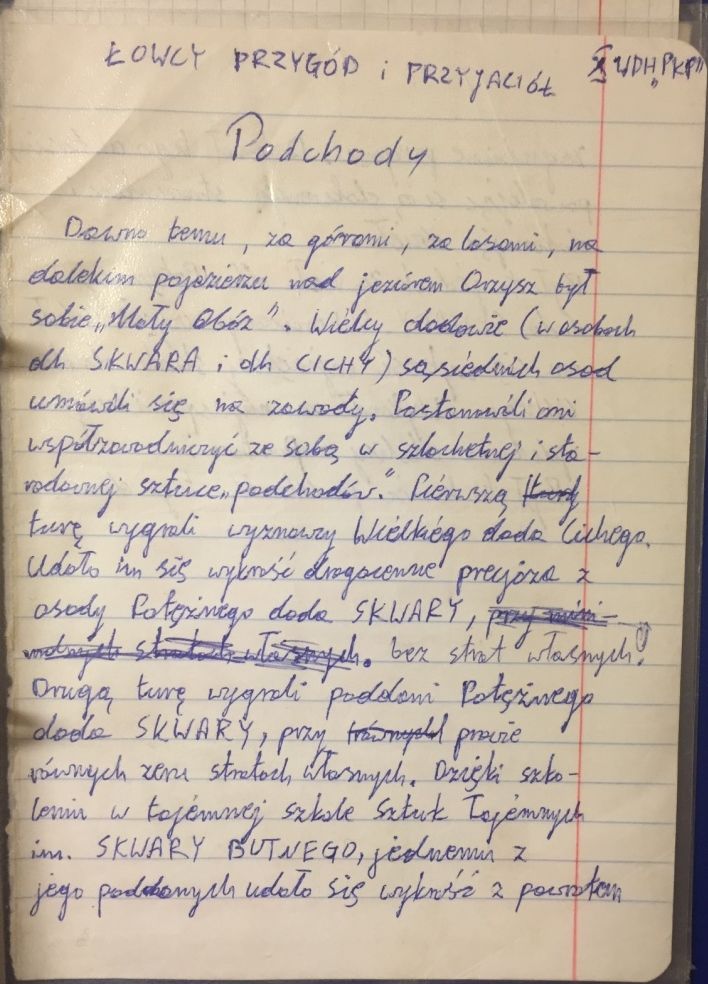 ŁOWCY PRZYGÓD i PRZYJACIÓŁ X WDH „PKP"
Podchody
Dawno temu, za górami, za lasami, na
dalekim pojezierzu nad jeziorem Orzysz był
sobie „Mały Obóz". Wielcy dadowie (w osobach
dh SKWARA i dh CICHY) sąsiednich osad
umówili się na zawody. Postanowili oni
współzawodniczyć ze sobą w szlachetnej i sta-
rodawnej sztuce „podchodów." Pierwszą
turę wygrali wyznawcy Wielkiego dada Cichego.
Udało im się wykraść drogocenne precjoza z
osady Potężnego dada SKWARY, przy mini-
malnych stratach własnych. bez strat własnych!
Drugą turę wygrali poddani Potężnego
dada SKWARY, przy równych prawie
równych zeru stratach własnych. Dzięki szko-
leniu w tajemnej szkole Sztuk Tajemnych
im. SKWARY BUTNEGO, jednemu z
jego poddanych udało się wykraść z powrotem